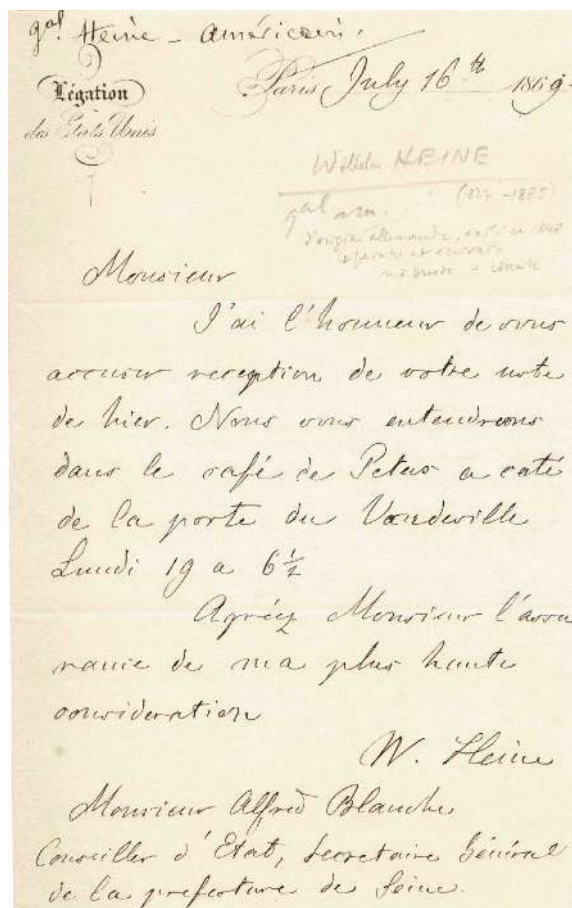 gal. Heine - américain.
Légation
des États Unis
Paris July 16th 1869.
Wilhelm HEINE
(1827 - 1885)
gal am.
d'origine allemande, exilé en 1848
Monsieur
J'ai l'honneur de vous
accuser reception de votre note
de hier. Nous vous entendrons
dans le café de Peters a coté
de la porte du Vaudeville
Lundi 19 a 6½
Agréez Monsieur l'assu
rance de ma plus haute
consideration
W. Heine
Monsieur Alfred Blanche
Conseiller d'Etat, Secretaire Général
de la prefecture de Seine.